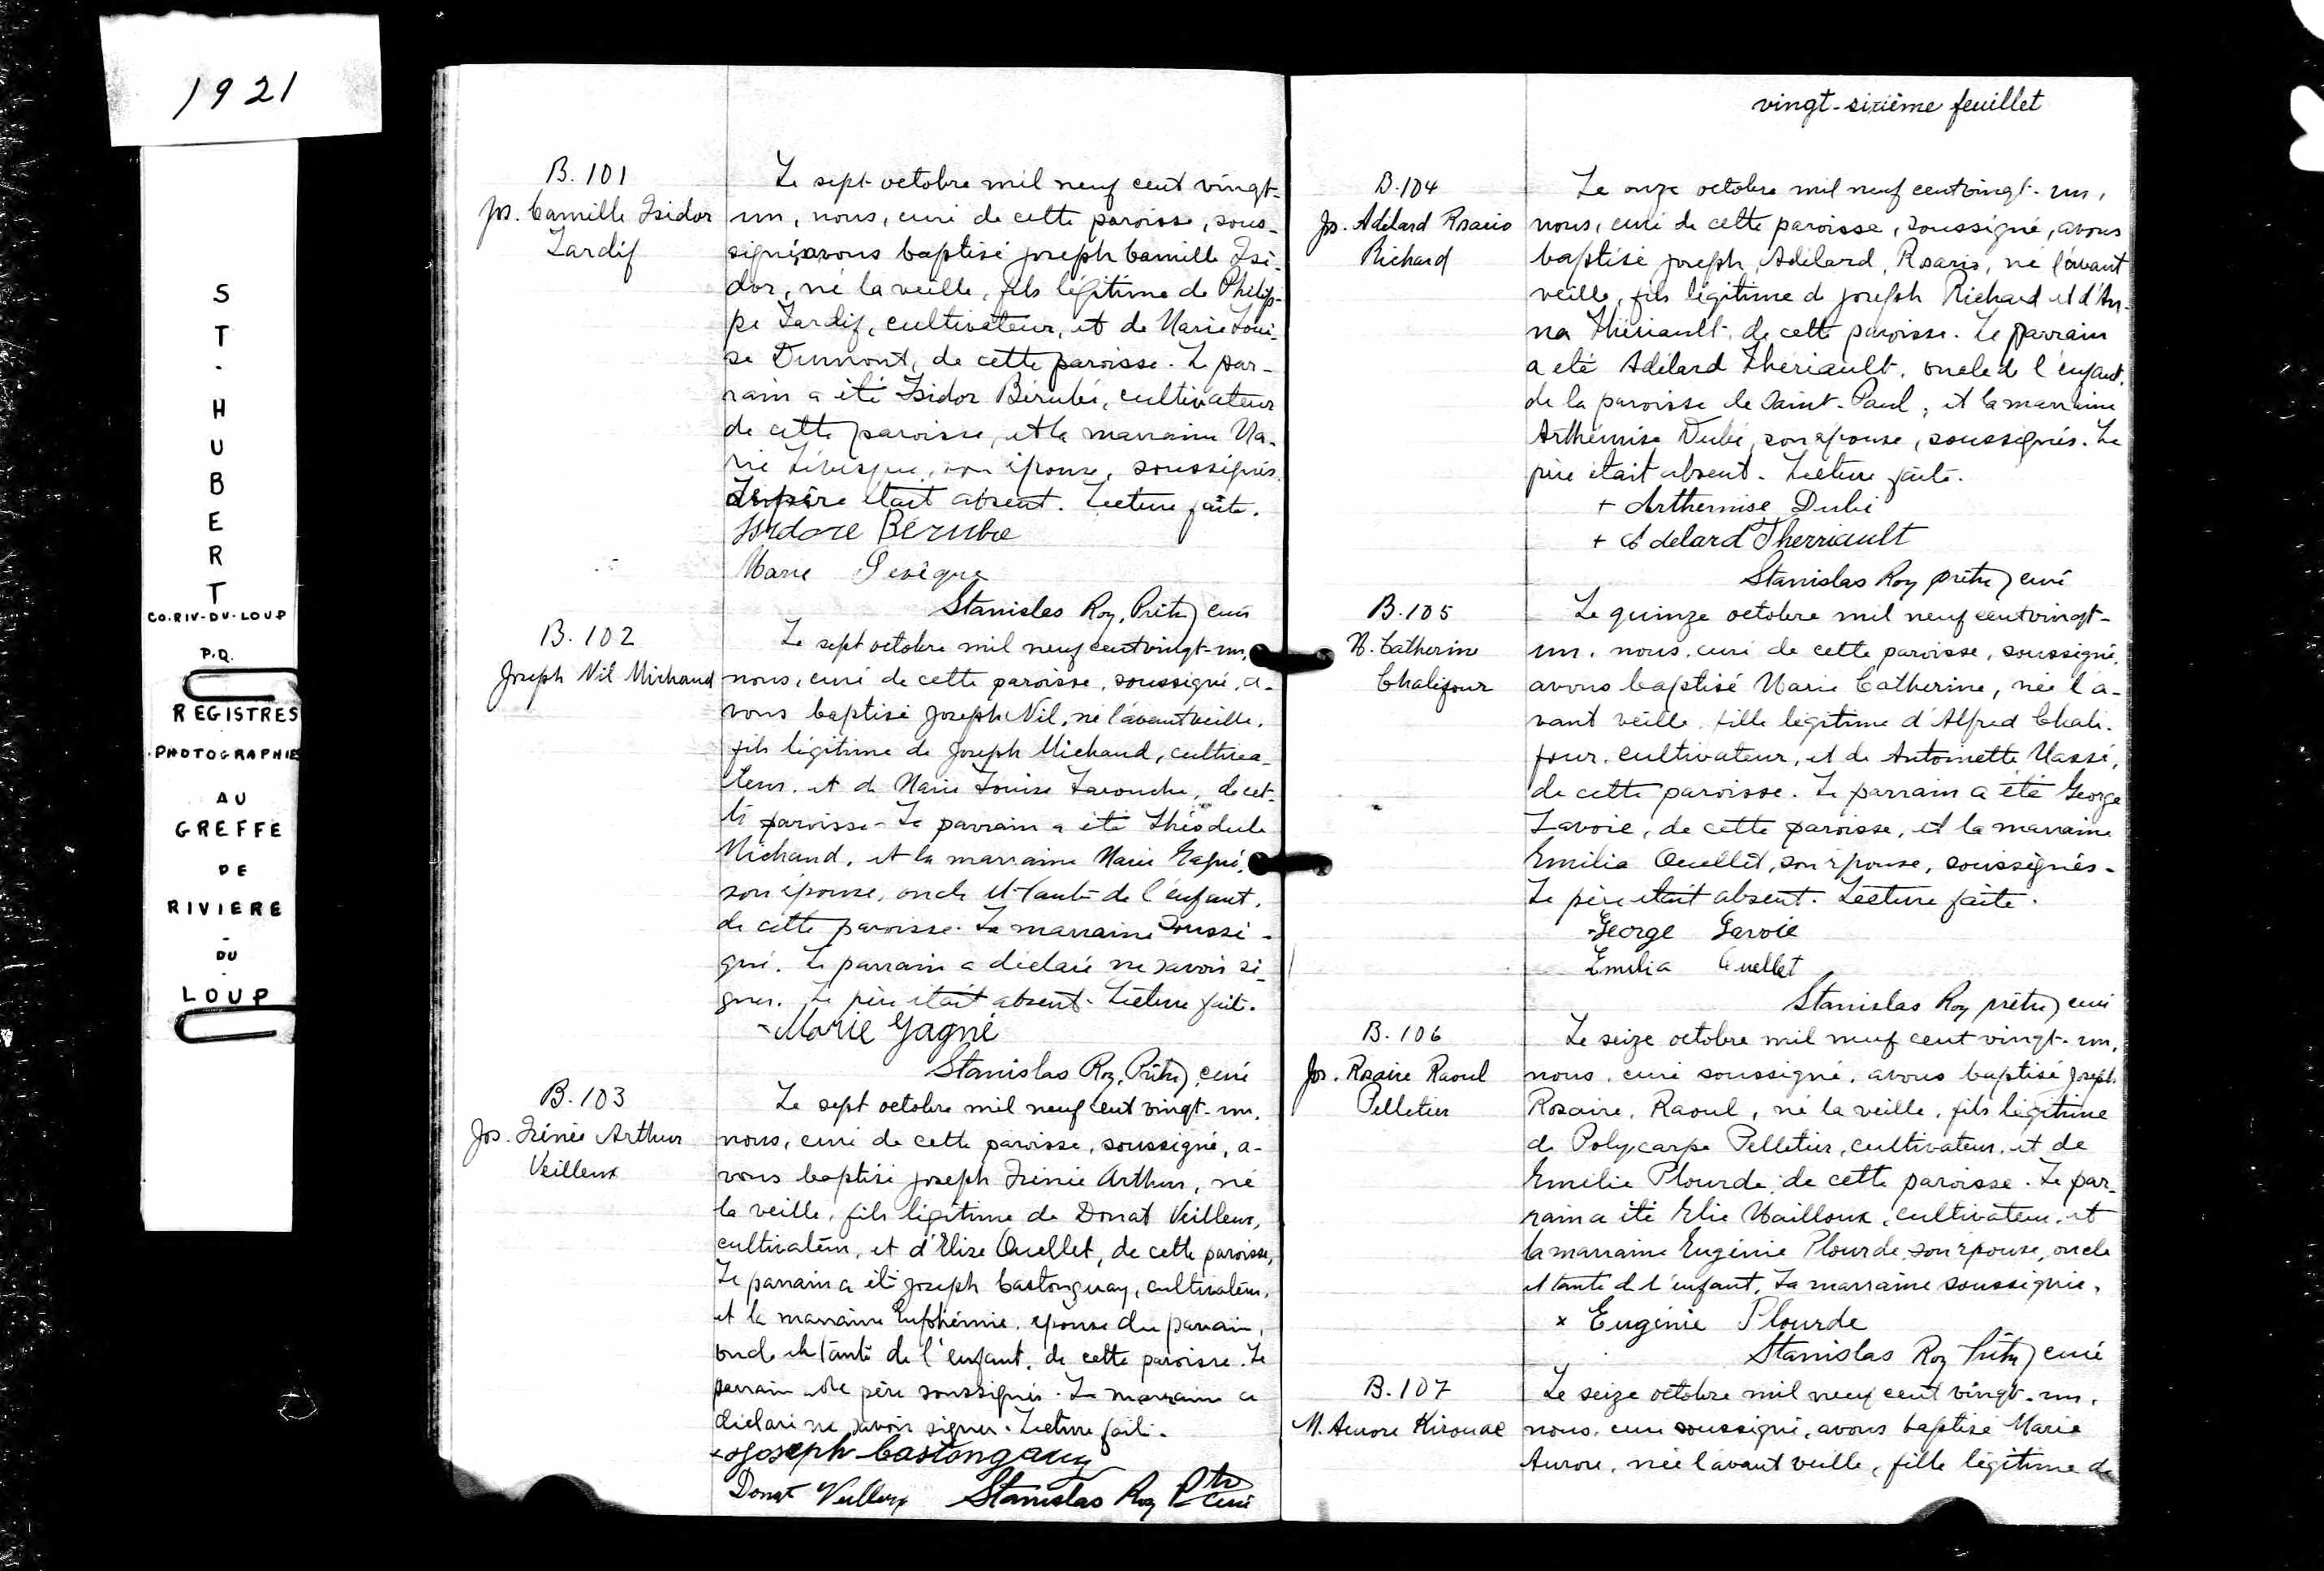 1921
S
T
.
H
U
B
E
R
T
CO. RIV-DU-LOUP
P.Q.
REGISTRES
PHOTOGRAPHIE
AU
GREFFE
DE
RIVIERE
-
DU
-
LOUP
B. 101
Jos. Camille Isidor
Tardif
Le sept octobre mil neuf cent vingt-
un, nous, curé de cette paroisse, sous-
signé, avons baptisé Joseph Camille Isi-
dor, né la veille, fils légitime de Philip-
pe Tardif, cultivateur, et de Marie Loui-
se Dumont, de cette paroisse. Le par-
rain a été Isidor Bérubé, cultivateur
de cette paroisse, et la marraine Ma-
rie Lévesque, son épouse, soussignés.
Le père était absent. Lecture faite.
Isidore Bérube
Marie Levêque
Stanislas Roy, Prêtre, curé
B. 102
Joseph Nil Michaud
Le sept octobre mil neuf cent vingt-un,
nous, curé de cette paroisse, soussigné, a-
vons baptisé Joseph Nil, né l'avant veille,
fils légitime de Joseph Michaud, cultiva-
teur, et de Marie Louise Larouche, de cet-
te paroisse. Le parrain a été Théodule
Michaud, et la marraine Marie Gagné,
son épouse, oncle et tante de l'enfant,
de cette paroisse. La marraine soussi-
gné. Le parrain a déclaré ne savoir si-
gner. Le père était absent. Lecture faite.
Marie Gagné
Stanislas Roy, Prêtre, curé
B. 103
Jos. Irénée Arthur
Veilleux
Le sept octobre mil neuf cent vingt-un,
nous, curé de cette paroisse, soussigné, a-
vons baptisé Joseph Irénée Arthur, né
la veille, fils légitime de Donat Veilleux,
cultivateur, et d'Elise Ouellet, de cette paroisse,
Le parrain a été Joseph Castonguay, cultivateur,
et la marraine Euphémie, épouse du parrain,
oncle et tante de l'enfant, de cette paroisse. Le
parrain et le père soussignés. La marraine a
déclaré ne savoir signer. Lecture faite.
x Joseph Castongauy
Donat Veilleux Stanislas Roy Ptre curé
vingt-sixième feuillet
B. 104
Jos. Adélard Rosario
Richard
Le onze octobre mil neuf cent vingt-un,
nous, curé de cette paroisse, soussigné, avons
baptisé Joseph, Adélard, Rosario, né l'avant
veille, fils légitime de Joseph Richard et d'An-
na Thériault, de cette paroisse. Le parrain
a été Adélard Thériault, oncle de l'enfant,
de la paroisse de Saint-Paul, et la marraine
Arthémise Dubé, son épouse, soussignés. Le
père était absent. Lecture faite.
+ Arthemise Dubé
+ Adelard Therriault
Stanislas Roy prêtre, curé
B. 105
M. Catherine
Chalifour
Le quinze octobre mil neuf cent vingt-
un, nous, curé de cette paroisse, soussigné,
avons baptisé Marie Catherine, née l'a-
vant veille, fille légitime d'Alfred Chali-
four, cultivateur, et de Antoinette Massé,
de cette paroisse. Le parrain a été George
Lavoie, de cette paroisse, et la marraine
Emilia Ouellet, son épouse, soussignés.
Le père était absent. Lecture faite.
George Lavoie
Emilia Ouellet
Stanislas Roy prêtre, curé
B. 106
Jos. Rosaire Raoul
Pelletier
Le seize octobre mil neuf cent vingt-un,
nous, curé soussigné, avons baptisé Joseph
Rosaire, Raoul, né la veille, fils légitime
de Polycarpe Pelletier, cultivateur, et de
Emilie Plourde, de cette paroisse. Le par-
rain a été Elie Mailloux, cultivateur, et
la marraine Eugénie Plourde, son épouse, oncle
et tante de l'enfant. La marraine soussignée.
x Eugénie Plourde
Stanislas Roy Prêtre, curé
B. 107
M. Aurore Kirouac
Le seize octobre mil neuf cent vingt-un,
nous, curé soussigné, avons baptisé Marie
Aurore, née l'avant veille, fille légitime de